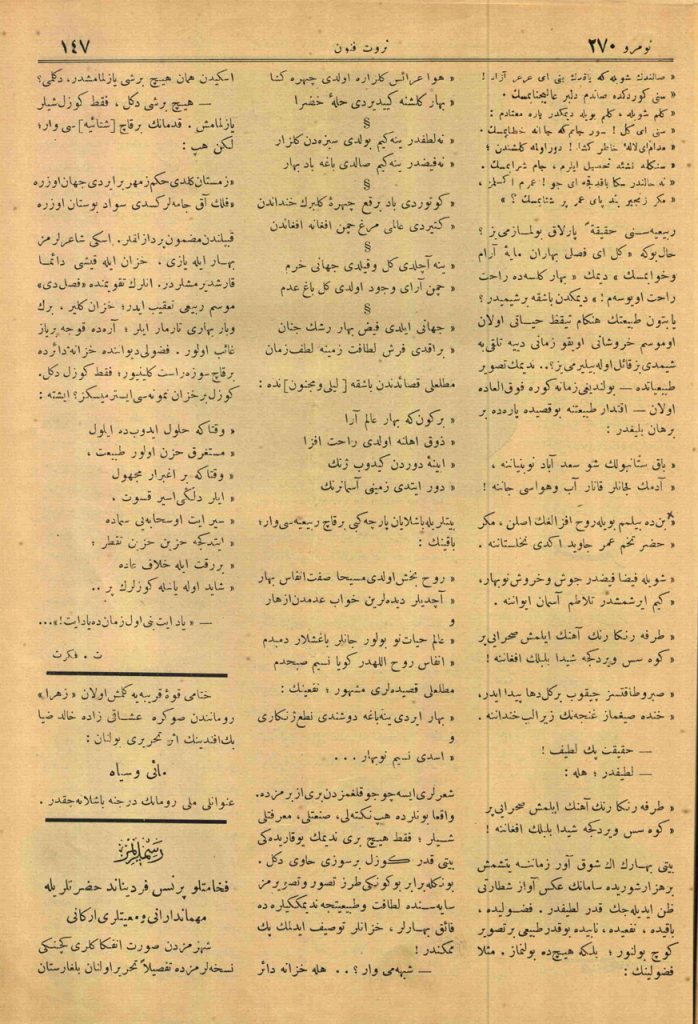 نومرو ٢٧٠
ثروت فنون
١٤٧
« صالندك شویله كه باقدك بنی ای عرعر آزاد !
« سنی كوردكده صاندم دلبر عالیجنابمسك .
« كلم شویله ، كلم بویله دیمكدر یاره معتادم :
« سنی ای كل ! سور جانم كه جانه خطابمسك .
« نه حالتدر سكا باقدقجه ای جو ! عمرم اكسلمز ،
« مكر زنجیر بند پای عمر پر شتابمسك ؟ »
ربیعیه‌سنی حقیقةً پارلاق بولمازمی‌یز ؟
حال‌بوكه « كل ای فصل بهاران مایهٔ آرام
وخوابمسك » دیمك « بهار كلسه‌ده راحت
راحت اویوسه‌م ! » دیمكدن باشقه برشیمیدر ؟
یا بتون طبیعتك هنكام تیقظ حیاتی اولان
اوموسم خروشانی اویقو زمانی دییه تلقی‌یه
شیمدی بز قائل اوله‌بیلیرمی‌یز ؟.. ندیمك تصویر
طبیعیاتده — بولندیغی زمانه كوره فوق‌العاده
اولان — اقتدار طبیعتنه بوقصیده یاره‌ده بر
برهان بلیغدر :
« باق ستانبولك شو سعد آباد نوبنیاننه ،
« آدمك جانلر قاتار آب وهواسی جاننه !
« بن‌ده بیلمم بویله روح افزالغك اصلن ، مكر
« حضر تخم عمر جاوید اكدی نخلستاننه .
« شویله فیضا فیضدر جوش وخروش نوبهار ،
« كیم ایرشمشدر تلاطم آسمان ایواننه .
« طرفه رنكا رنك آهنك ایلمش صحرایی پر
« كوه سس ویردكجه شیدا بلبلك افغاننه !
« صبر وطاقتسز چیقوب بركل‌ده‌ها پیدا ایدر ،
« خنده صیغماز غنچه‌نك زیرا لب خنداننه .
— حقیقت پك لطیف !
— لطیفدر ؛ هله :
« طرفه رنكا رنك آهنك ایلمش صحرایی پر
« كوه سس ویردكجه شیدا بلبلك افغاننه !
بیتی بهارك اك شوق آور زماننه یتشمش
برهزار شوریده سامانك عكس آواز شطارتی
ظن ایدیله‌جك قدر لطیفدر . فضولیده ،
باقیده ، نفعیده ، نابیده بوقدر طبیعی بر تصویر
كوچ بولنور ؛ بلكه هیچ‌ده بولنماز . مثلا
فضولینك :
« هوا عرائس كلزاره اولدی چهره كشا
« بهار كلشنه كیدیردی حلهٔ خضرا
§
« نه لطفدر ینه كیم بولدی سبزه‌دن كلزار
« نه فیضدر ینه‌كیم صالدی باغه باد بهار
§
« كوتوردی باد برقع چهرهٔ كلبرك خنداندن
« كتیردی عالمی مرغ چمن افغانه افغاندن
§
« ینه آچلدی كل وقیلدی جهانی خرم
« چمن آرای وجود اولدی كل باغ عدم
§
« جهانی ایلدی فیض بهار رشك جنان
« براقدی فرش لطافت زمینه لطف زمان
مطلعلی قصائدندن باشقه [ لیلی ومجنون ] نده :
« بركون‌كه بهار عالم آرا
« ذوق اهلنه اولدی راحت افزا
« آیینهٔ دوردن كیدوب ژنك
« دور ایتدی زمینی آسمانرنك
بیتلریله باشلایان پارچه كبی برقاچ ربیعیه‌سی وار ؛
باقینك :
« روح بخش اولدی مسیحا صفت انفاس بهار
« آچدیلر دیده‌لرین خواب عدمدن ازهار
و
« عالم حیات نو بولور جانلر باغشلار دمبدم
« انفاس روح اللهدر كویا نسیم صبحدم
مطلعلی قصیده‌لری مشهور ؛ نفعینك :
« بهار ایردی ینه باغه دوشندی نطع زنكاری
و
« اسدی نسیم نوبهار . . .
شعرلری ایسه چوجوقلغمزدن بری از برمزده .
واقعا بونلرده هپ نكته‌لی ، صنعتلی ، معرفتلی
شیلر ؛ فقط هیچ بری ندیمك یوقاریده‌كی
بیتی قدر كوزل برسوزی حاوی دكل .
بونكله برابر بوكونكی طرز تصور وتصویرمز
سایه‌سنده لطافت وطبیعیتجه ندیمككیلره ده
فائق بهارلر ، خزانلر توصیف ایدلمك پك
ممكندر !
— شبهه‌می وار ؟ . . هله خزانه دائر
اسكیدن همان هیچ برشی یازلمامشدر ، دكلمی ؟
— هیچ برشی دكل ، فقط كوزل شیلر
یازلمامش . قدمانك برقاچ [ شتائیه ] سی وار ؛
لكن هپ :
« زمستان كلدی حكم زمهریر ایردی جهان اوزره
« فلك آق جامه‌لر كسدی سواد بوستان اوزره
قبیلندن مضمون پردازلقدر . اسكی شاعرلرمز
بهار ایله یازی ، خزان ایله قیشی دائما
قارشدیرمشلردر . انلرك تقویمنده « فصل دی »
موسم ربیعی تعقیب ایدر ؛ خزان كلیر . برك
وبار بهاری تارمار ایلر ؛ آره‌ده قوجه بر یاز
غائب اولور . فضولی دیواننده خزانه دائرده
برقاچ سوزه راست كلینیور ؛ فقط كوزل دكل .
كوزل برخزان نمونه‌سی ایسترمیسكز ؟ ایشته :
« وقتاكه حلول ایدوب‌ده ایلول
« مستغرق حزن اولور طبیعت ،
« وقتاكه بر اغبرار مجهول
« ایلر دلكی اسیر قسوت ،
« سیر ایت اوسحابه‌یی سماده
« ایتدكجه حزین حزین تقطر ؛
« بررقت ایله خلاف عاده
« شاید اوله یاشله كوزلرك پر ..
— « یاد ایت بنی اول زمان‌ده یاد ایت ! »...
ت . فكرت
ختامی قوهٔ قریبه‌یه كلمش اولان « زهرا »
رومانندن صوكره عشاقی زاده خالد ضیا
بك افندینك اثر تحریری بولنان :
مائی وسیاه
عنوانلی ملی رومانك درجنه باشلانه‌جقدر .
رسملرمز
فخامتلو پرنس فردیناند حضرتلریله
مهمانداران ومعیتلری اركانی
شهرمزدن صورت انفكاكلری كچنكی
نسخه‌لرمزده تفصیلاً تحریر اولنان بلغارستان